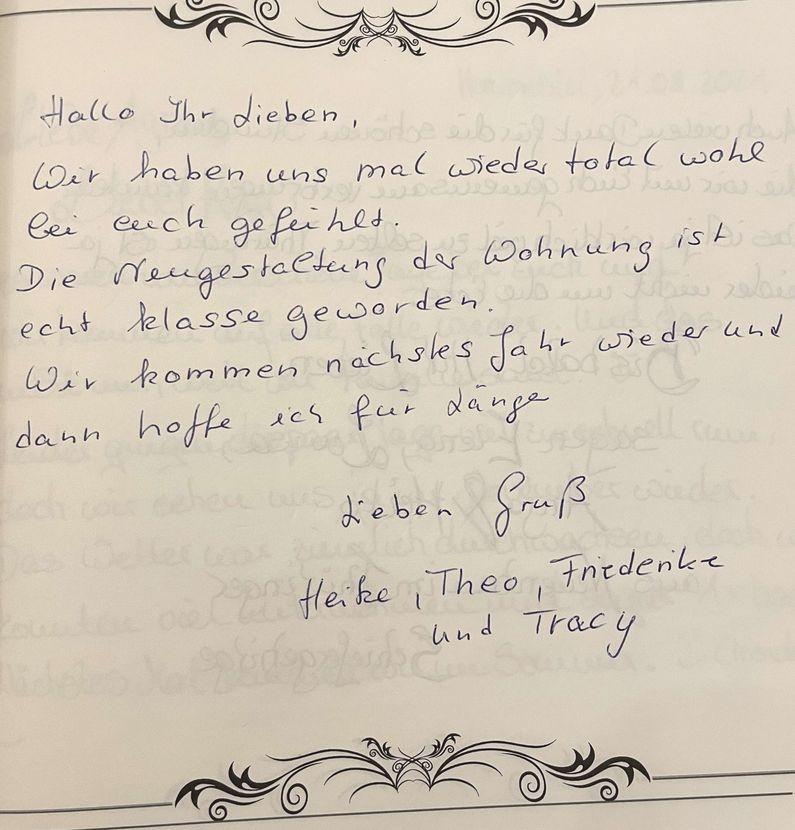 Hallo Ihr Lieben,
Wir haben uns mal wieder total wohl
bei euch gefühlt.
Die Neugestaltung der Wohnung ist
echt klasse geworden.
Wir kommen nächstes Jahr wieder und
dann hoffe ich für Länger
Lieben Gruß
Heike, Theo, Friederike
und Tracy